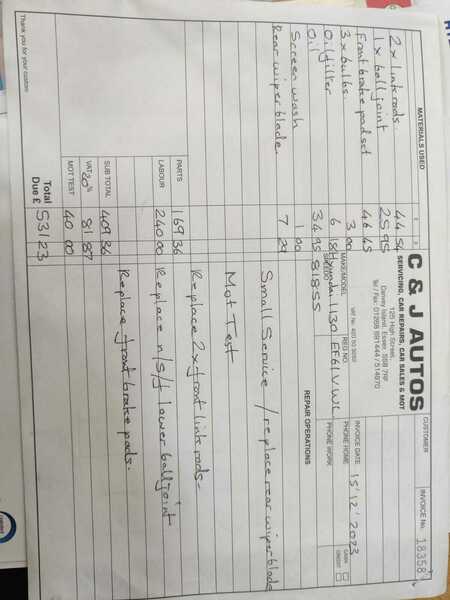 CUSTOMER
INVOICE No. 18358
C & J AUTOS
SERVICING, CAR REPAIRS, CAR SALES & MOT
125 High Street,
Canvey Island, Essex, SS8 7RF
Tel / Fax: 01268 691444 / 514970
INVOICE DATE 15/12/2023
CASH
CREDIT
PHONE HOME
PHONE WORK
MAKE/MODEL Hyundai I30
REG NO. EF61VWC
SPEEDO 81855
MATERIALS USED £
2 x link rods. 44 54
1 x ball joint 25 95
Front brake pad set 46 45
3 x bulbs. 3 00
Oil filter 6 18
Oil 34 95
Screen wash 1 00
Rear wiper blade. 7 29
REPAIR OPERATIONS
Small Service / replace rear wiper blade
Mot Test
Replace 2x front link rods
Replace n/s/f lower ball joint
Replace front brake pads.
PARTS 169 36
LABOUR 240 00
SUB TOTAL 409 36
VAT 20% 81 87
MOT TEST 40 00
Total Due £ 531 23
Thank you for your custom